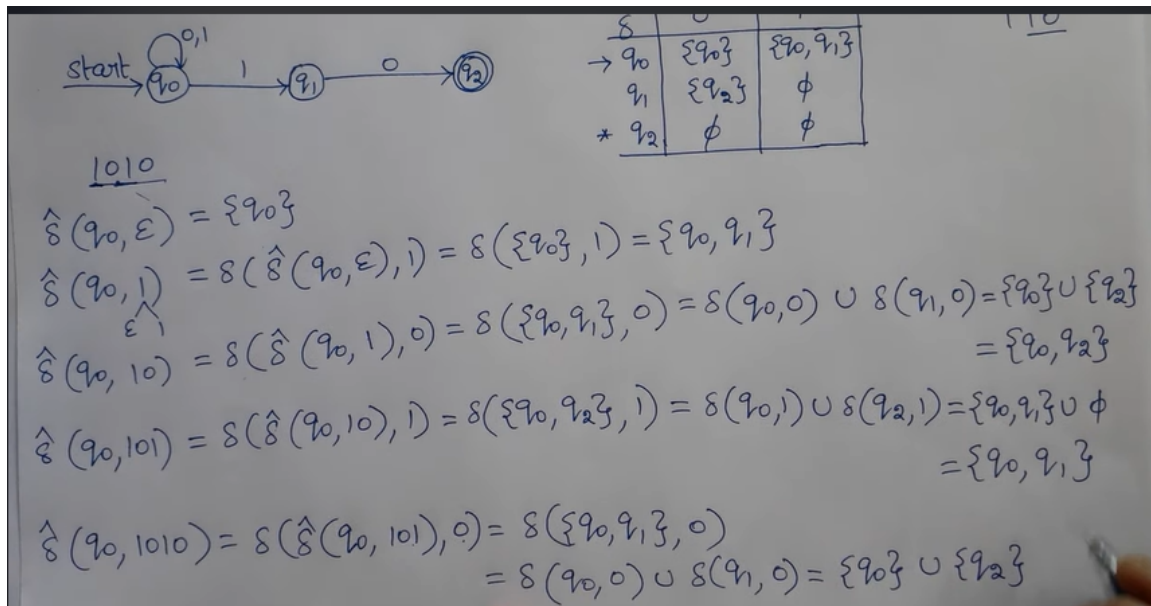 0,1
start → q0 1 q1 0 q2
δ
→ q0 {q0} {q0, q1}
q1 {q2} ϕ
* q2 ϕ ϕ
110
1010
δ̂(q0, ε) = {q0}
δ̂(q0, 1) = δ(δ̂(q0, ε), 1) = δ({q0}, 1) = {q0, q1}
ε 1
δ̂(q0, 10) = δ(δ̂(q0, 1), 0) = δ({q0, q1}, 0) = δ(q0, 0) ∪ δ(q1, 0) = {q0} ∪ {q2}
= {q0, q2}
δ̂(q0, 101) = δ(δ̂(q0, 10), 1) = δ({q0, q2}, 1) = δ(q0, 1) ∪ δ(q2, 1) = {q0, q1} ∪ ϕ
= {q0, q1}
δ̂(q0, 1010) = δ(δ̂(q0, 101), 0) = δ({q0, q1}, 0)
= δ(q0, 0) ∪ δ(q1, 0) = {q0} ∪ {q2}